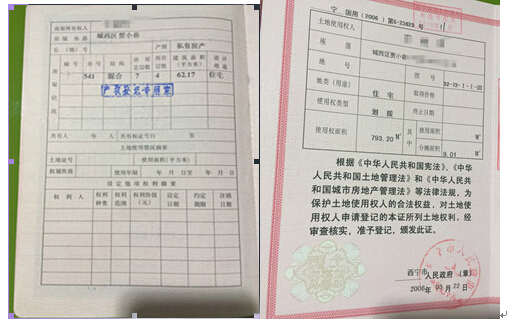 房屋所有权人
房屋坐落 城西区贾小庄
丘(地)号 产别 私有房产
幢号 房号 结构 房屋总层数 所在层数 建筑面积(平方米) 设计用途
541 混合 7 4 62.17 住宅
房屋状况
产权登记专用章
共有人 等 人 共有权证号自
土地使用情况摘要
土地证号 使用面积(平方米)
权属性质 使用年限 年 月 日至 年 月 日
设定他项权利摘要
权利人 权利种类 权利范围 权利价值(元) 设定日期 约定期限 注销日期
宁 国用(2006)第G-23629号
土地使用权人
座落 城西区贾小
地号 图号 52-72-1-1-
地类(用途) 住宅 取得价格
使用权类型 划拨 终止日期
使用权面积 793.20 M² 其中 独用面积 M²
分摊面积 9.01 M²
根据《中华人民共和国宪法》、《中华
人民共和国土地管理法》和《中华人民
共和国城市房地产管理法》等法律法规,为
保护土地使用权人的合法权益,对土地使
用权人申请登记的本证所列土地权利,经
审查核实,准予登记,颁发此证。
西宁市人民政府(章)
2006年 03月 22日